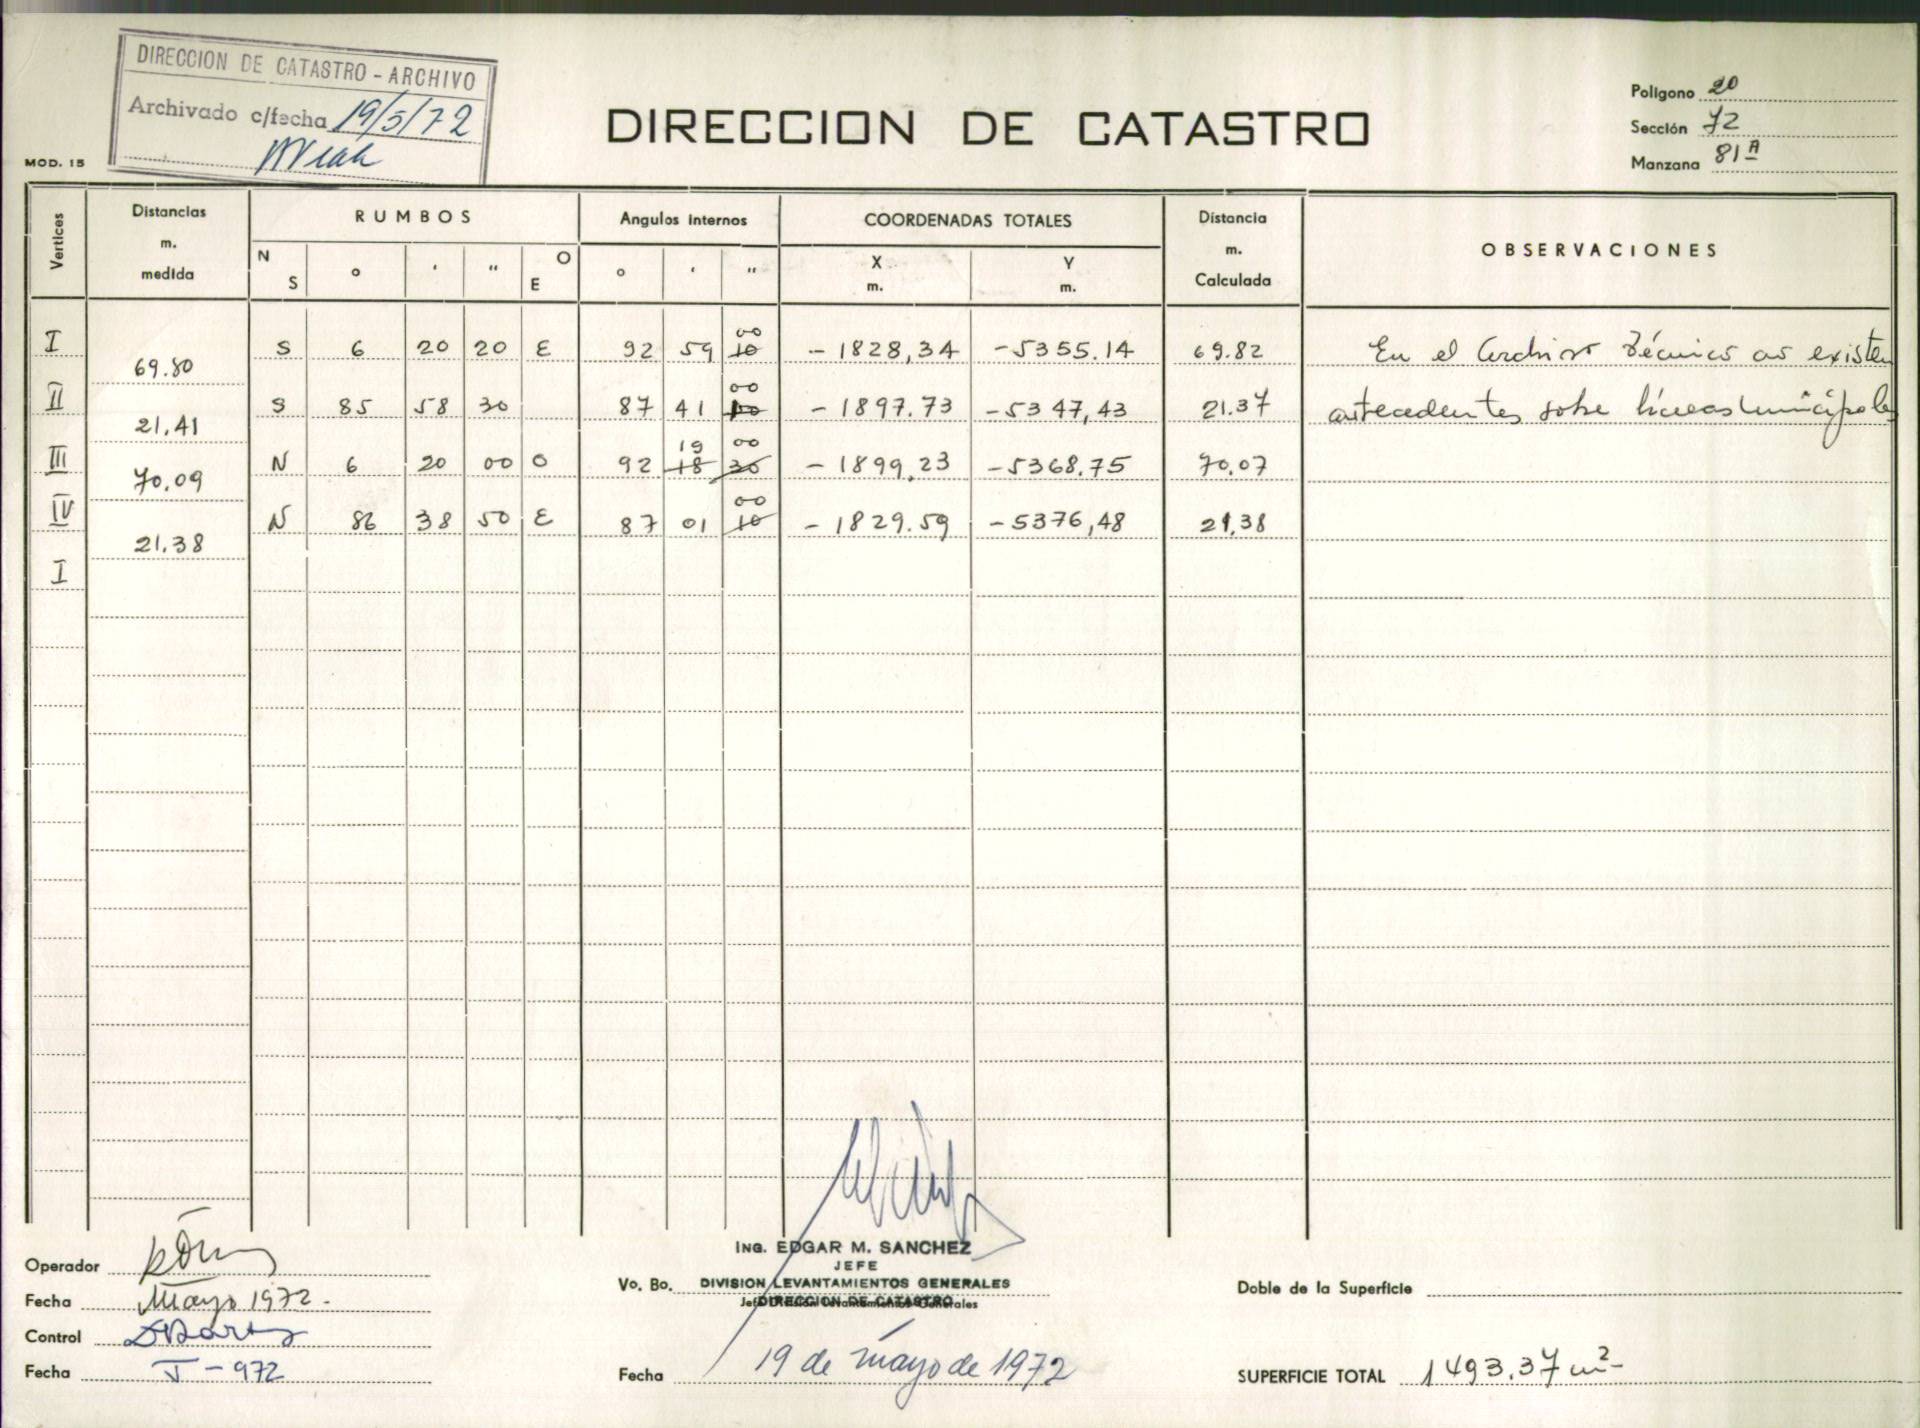 DIRECCION DE CATASTRO - ARCHIVO
Archivado c/fecha 19/5/72
MOD. 15
DIRECCION DE CATASTRO
Polígono 20
Sección 72
Manzana 81 A
Vertices
Distancias m. medida
RUMBOS
Angulos internos
COORDENADAS TOTALES
Distancia m. Calculada
OBSERVACIONES
N S ° ' " O E
° ' "
X m. Y m.
I S 6 20 20 E 92 59 00 10 -1828,34 -5355.14 69.82 En el Archivo Técnico no existen
69.80
II S 85 58 30 87 41 00 -1897.73 -5347,43 21.37 antecedentes sobre líneas municipales
21.41
III N 6 20 00 O 92 19 18 00 30 -1899,23 -5368.75 70.07
70.09
IV N 86 38 50 E 87 01 00 10 -1829.59 -5376,48 21,38
21.38
I
Operador
Fecha Mayo 1972.
Control
Fecha V-972
ING. EDGAR M. SANCHEZ
JEFE
Vo. Bo. DIVISION LEVANTAMIENTOS GENERALES
Jefe División Levantamientos Generales
DIRECCION DE CATASTRO
Fecha 19 de mayo de 1972
Doble de la Superficie
SUPERFICIE TOTAL 1493.37 m²